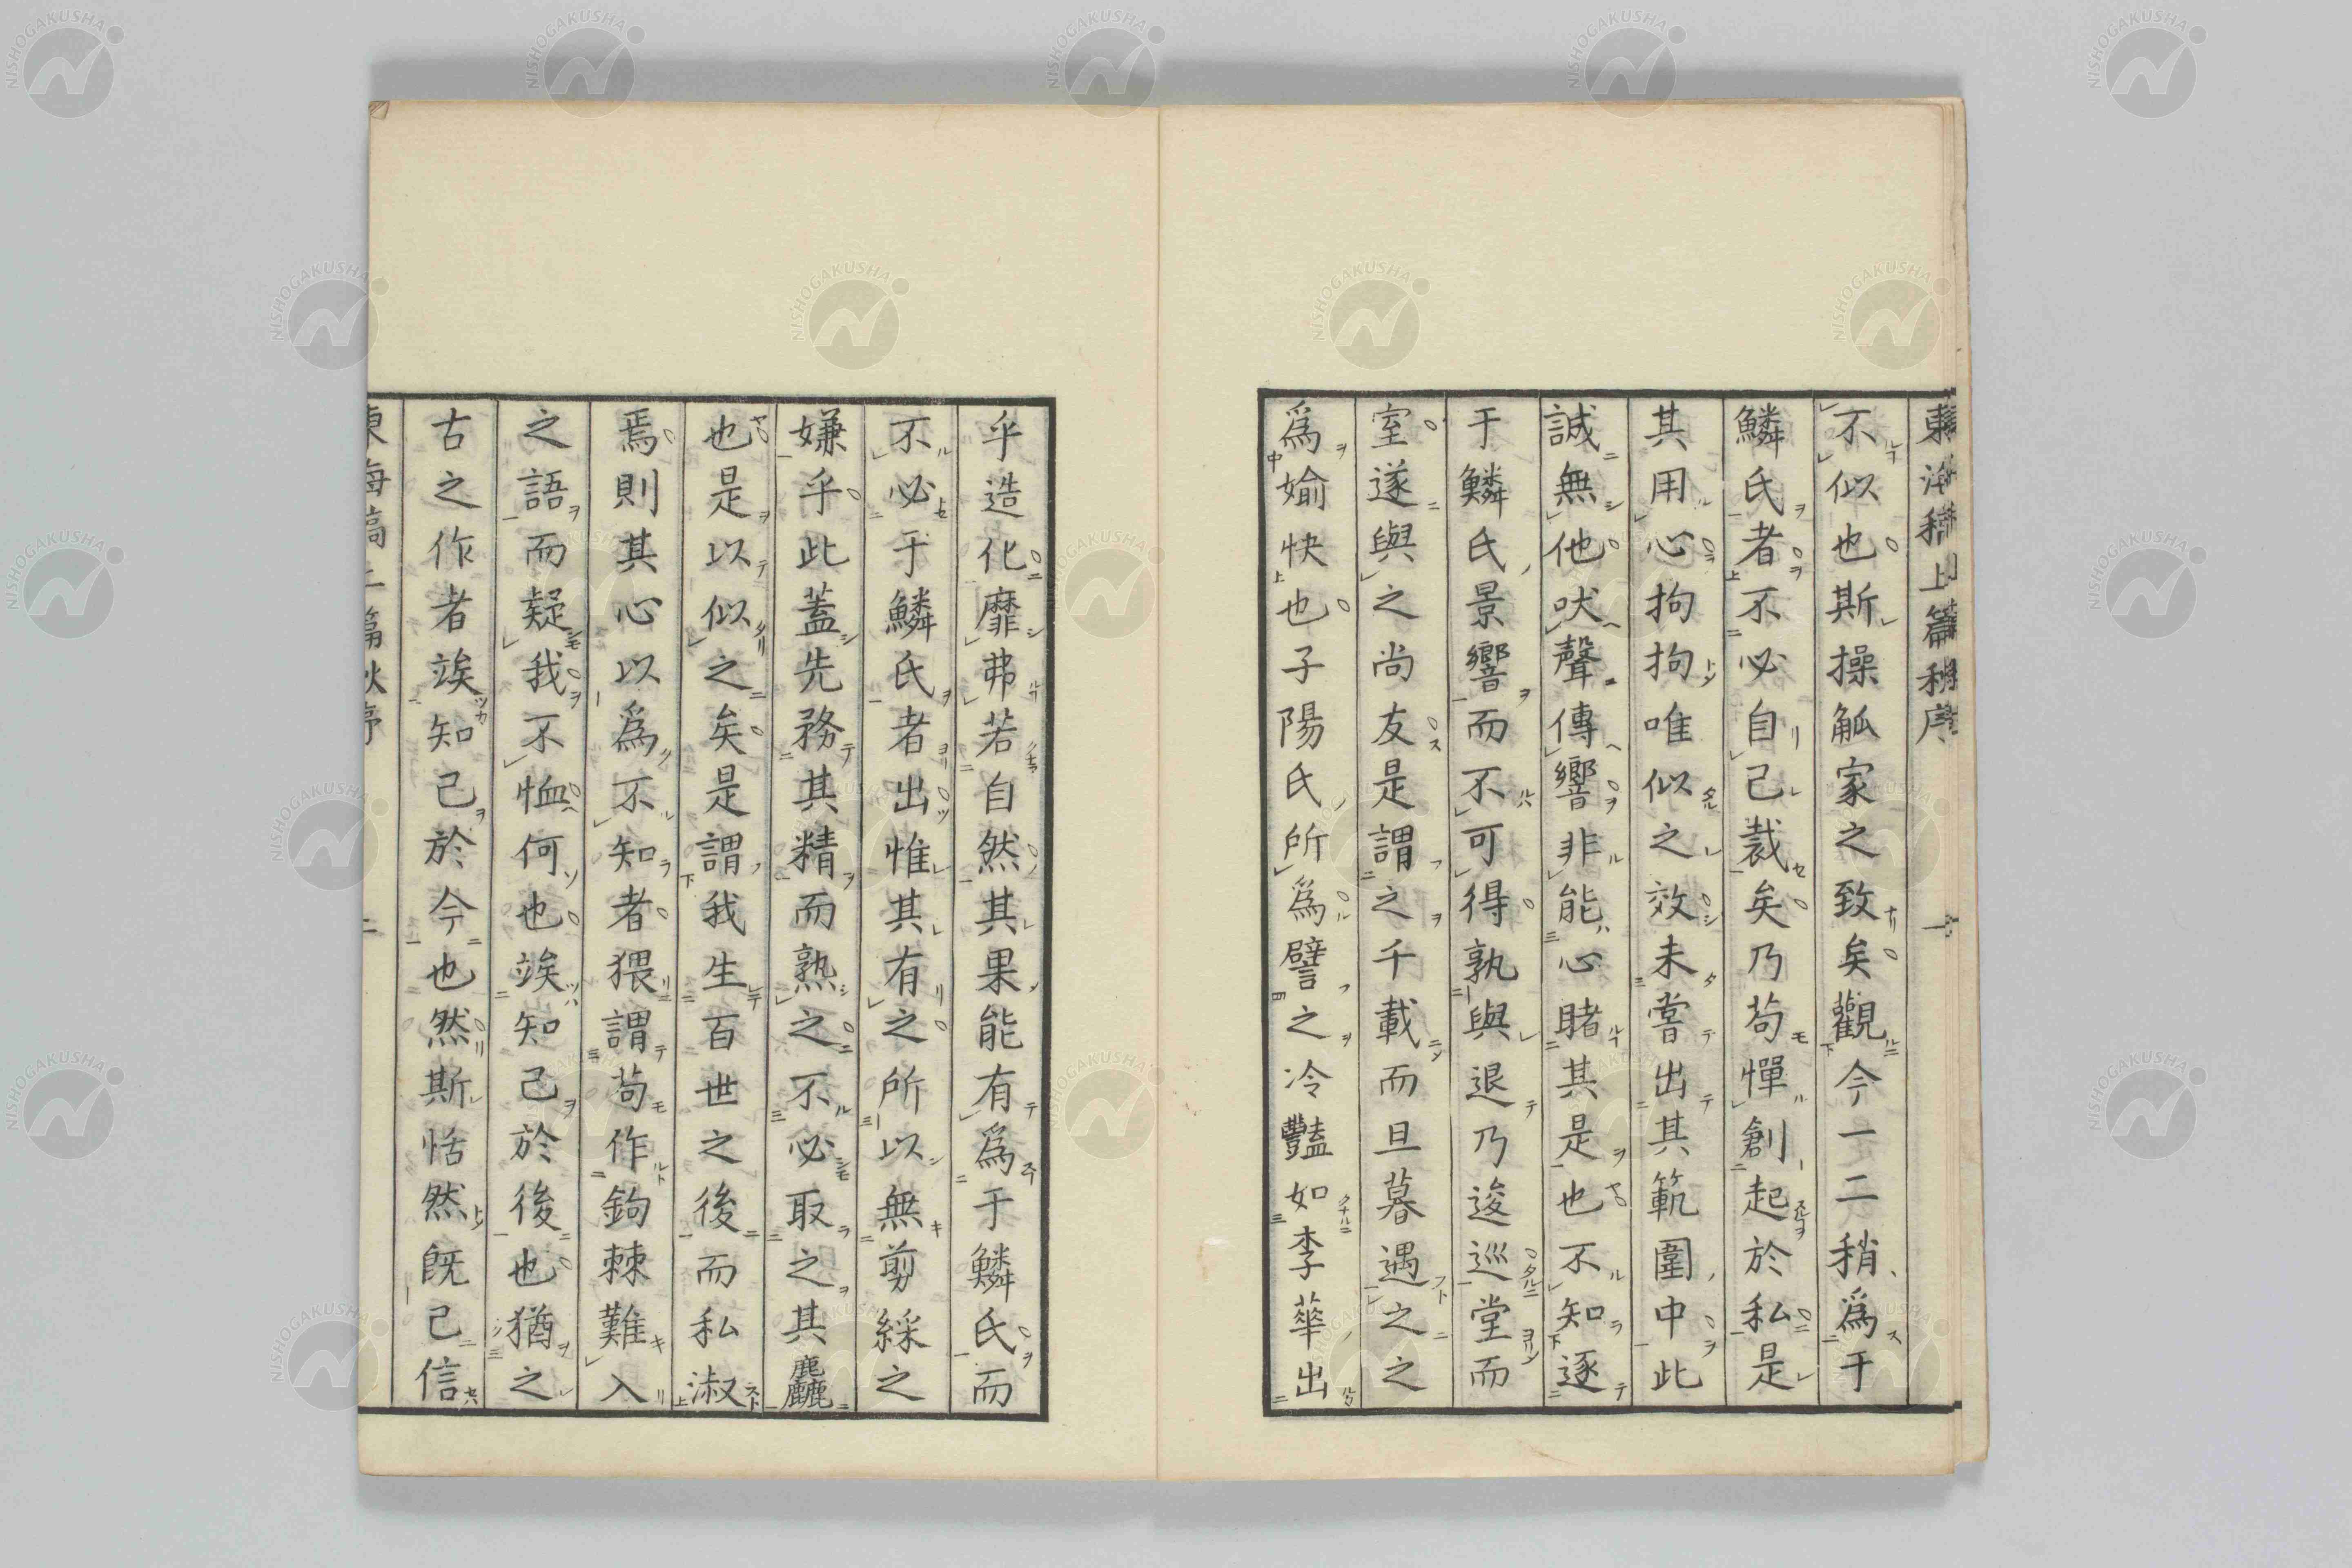 東海稿上篇秋序 一
不似也斯操觚家之致矣觀今一二稍爲于
鱗氏者不必自己裁矣乃苟憚創起於私是
其用心拘拘唯似之效未嘗出其範圍中此
誠無他吠聲傳響非能心睹其是也不知逐
于鱗氏景響而不可得孰與退乃逡巡堂而
室遂與之尚友是謂之千載而旦暮遇之之
爲媮快也子陽氏所爲譬之冷豔如李華出
乎造化靡弗若自然其果能有爲于鱗氏而
不必于鱗氏者出惟其有之所以無剪綵之
嫌乎此蓋先務其精而熟之不必取之其麤
也是以似之矣是謂我生百世之後而私淑
焉則其心以爲不知者猥謂苟作鉤棘難入
之語而疑我不恤何也竢知己於後也猶之
古之作者竢知己於今也然斯恬然既己信
東海稿上篇秋序 二
NISHOGAKUSHA